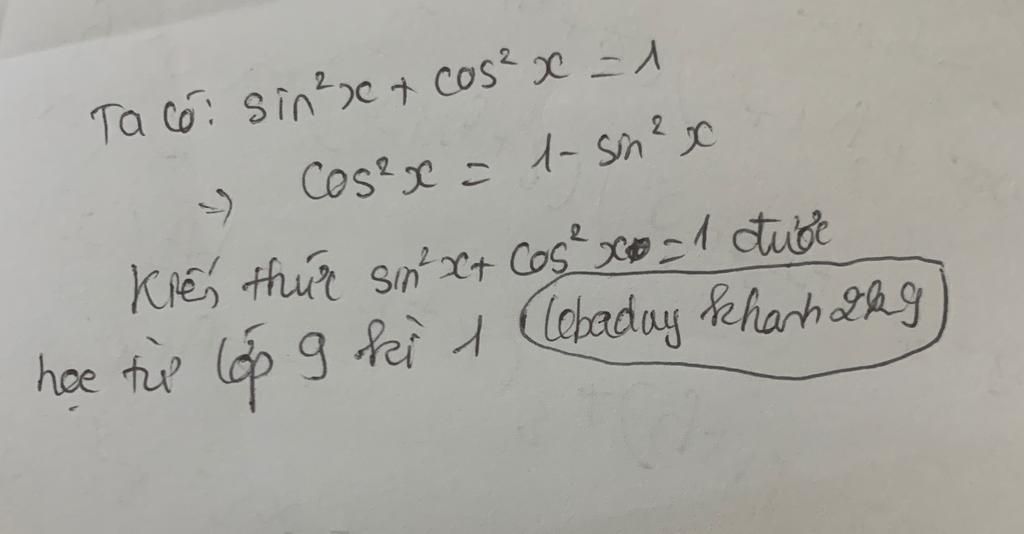 Ta có: sin²x + cos²x = 1
=> cos²x = 1 - sin²x
Kiến thức sin²x + cos²x = 1 được
học từ lớp 9 kì 1 lebaduy khanh2k9